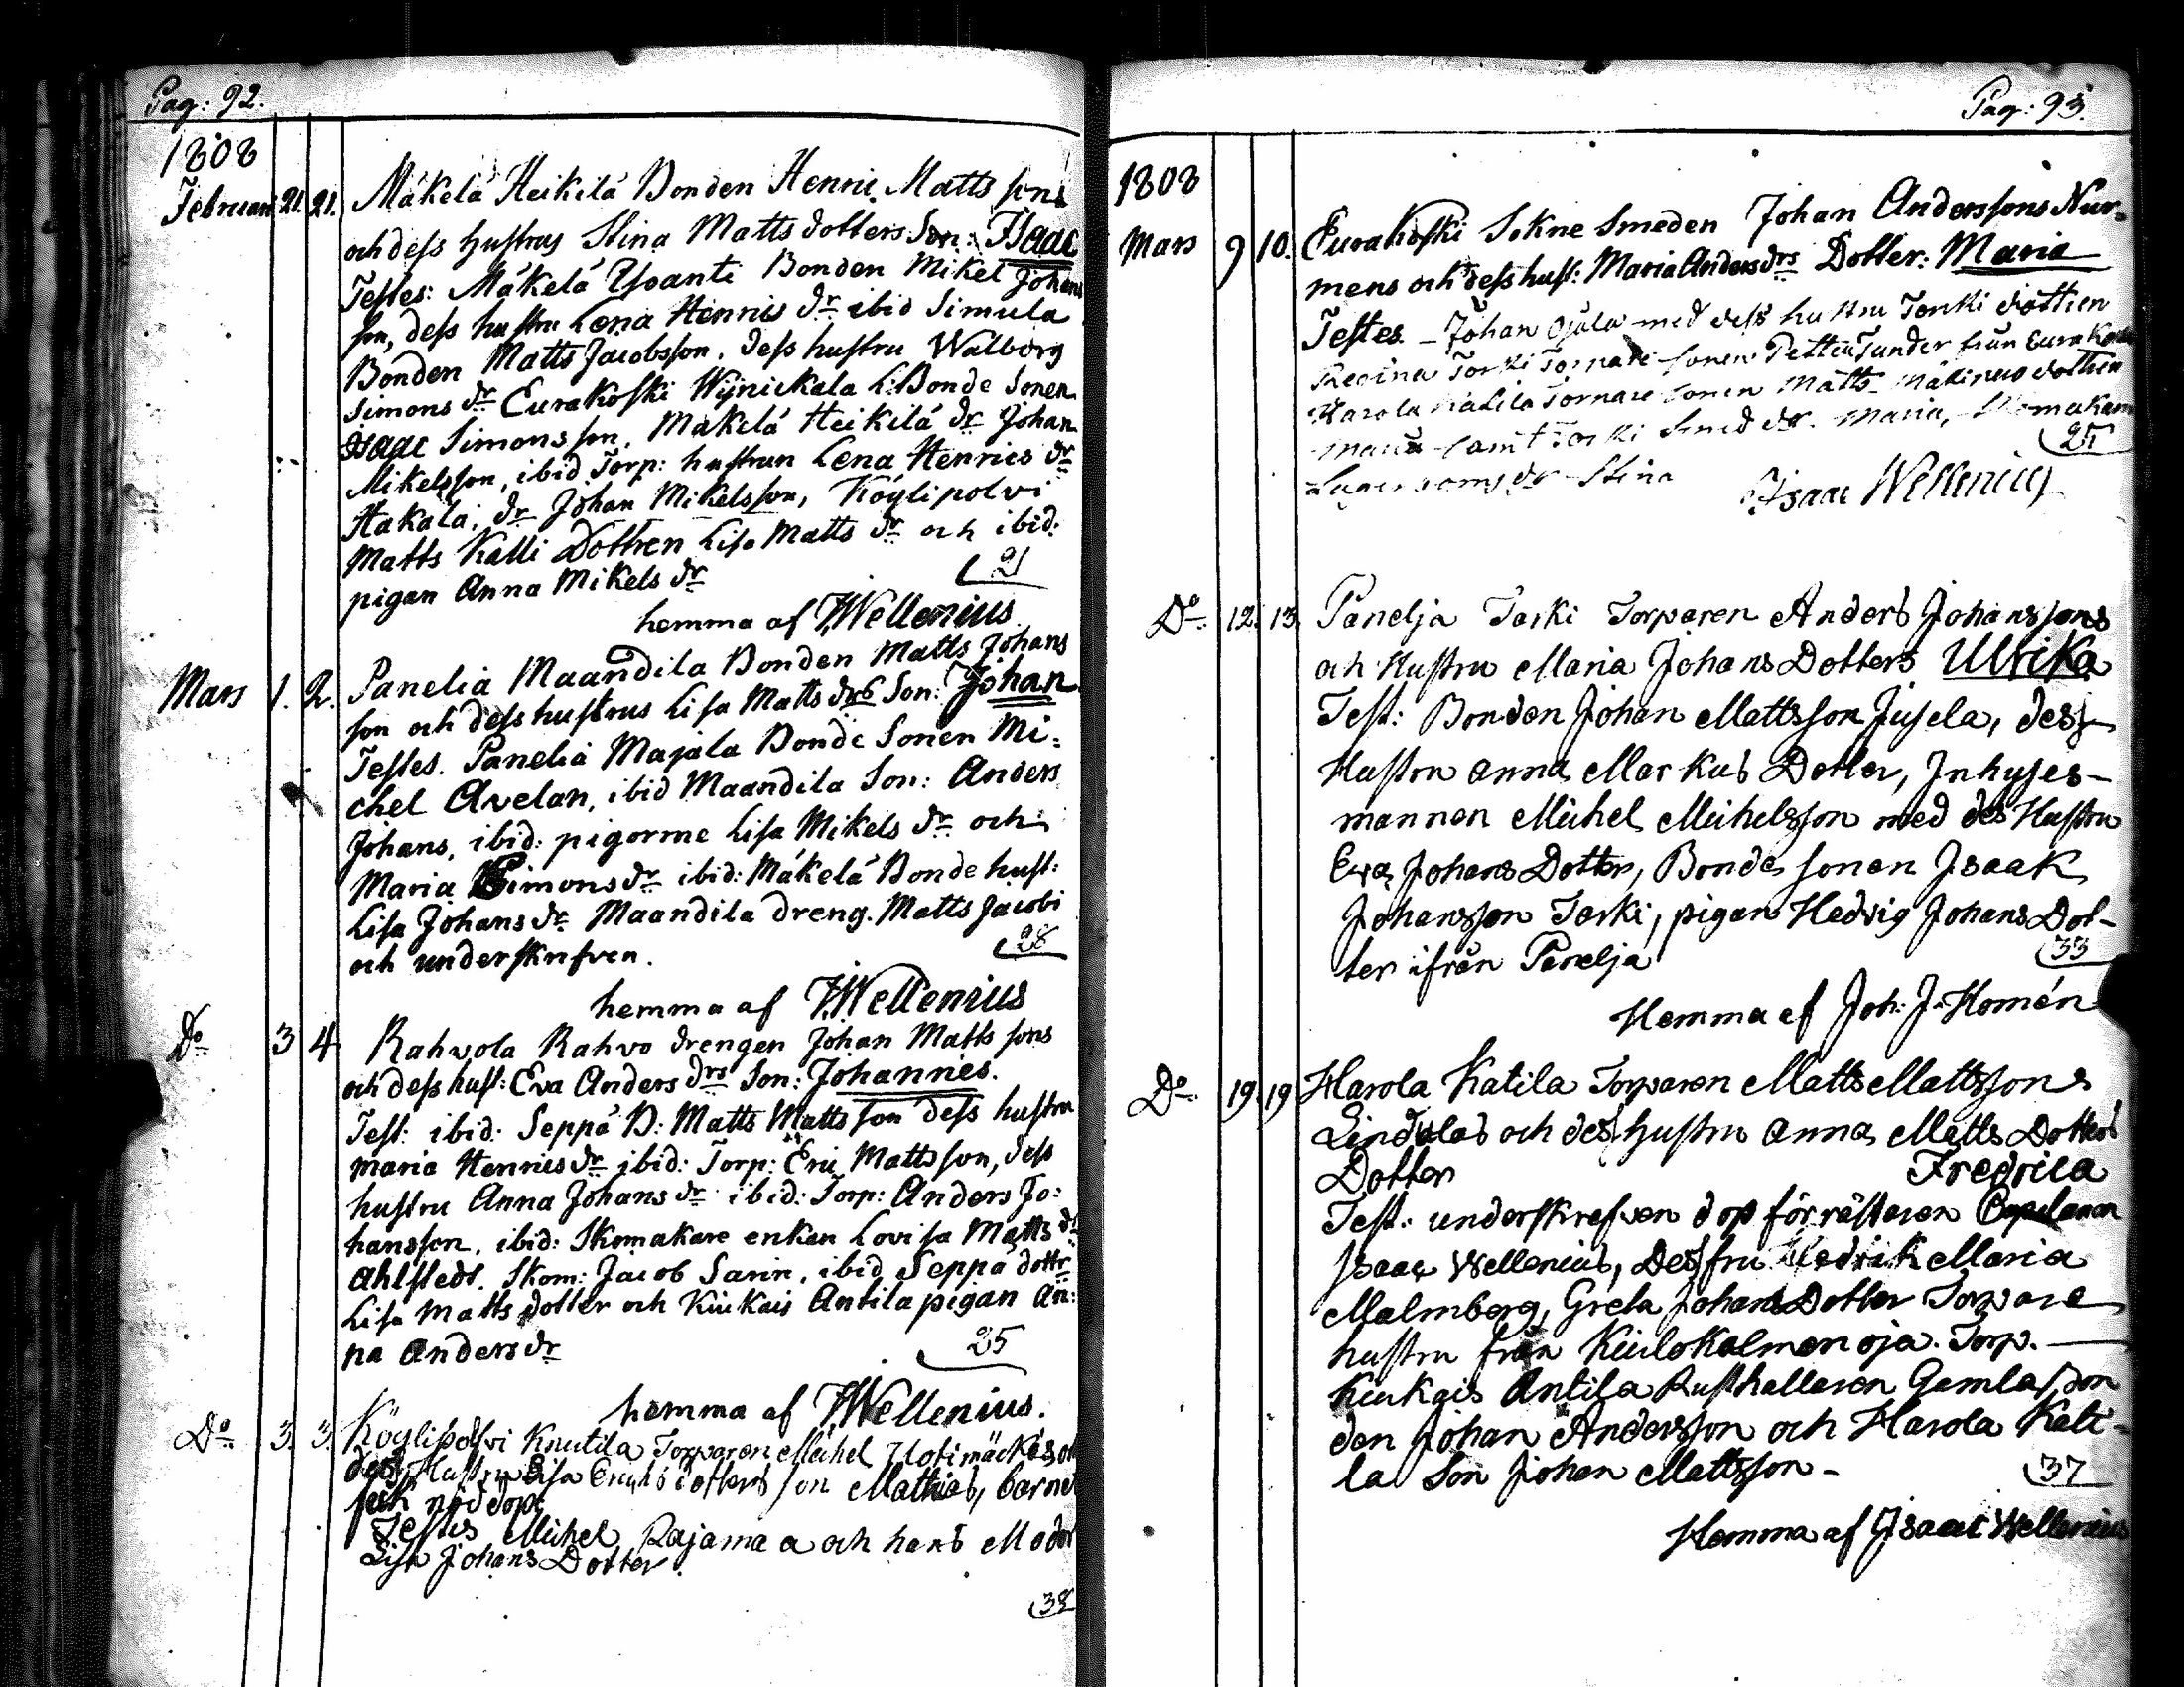 Pag: 92.
1808
Februari 21. 21. Mäkelä Heikilä Bonden Henric Matts sons
och dess hustrus Stina Matts dotters Son: Isaac
Testes: Mäkelä Yoanti Bonden Mikel Johans
son, dess hustru Lena Henrics dr ibid Simula
Bonden Matts Jacobsson, dess hustru Walborg
Simons dr Eurakoski Wijnickala L: Bonde Sonen
Isaac Simonsson, Mäkelä Heikilä dr Johan
Mikelsson, ibid Torp: hustrun Lena Henrics dr
Hakala, dr Johan Mikelsson, Köylipolvi
Matts Kalli Dottren Lisa Matts dr och ibid:
pigan Anna Mikels dr
21
hemma af I Wellenius.
Mars 1. 2. Panelia Maandila Bonden Matts Johans
son och dess hustrus Lisa Matts drs Son: Johan
Testes. Panelia Majala Bonde Sonen Mi:
chel Avelan, ibid Maandila Son: Anders
Johans, ibid: pigorme Lisa Mikels dr och
Maria Simons dr ibid: Mäkelä Bonde hust:
Lisa Johans dr Maandila dreng. Matts Jacobi
och underskrifven.
28
hemma af I Wellenius
Do 3 4 Rahvola Rahvo drengen Johan Matts sons
och dess hust: Eva Anders drs Son: Johannes.
Test: ibid: Seppä B: Matts Matts son dess hustru
maria Henrics dr ibid: Torp: Eric Mattsson, dess
hustru Anna Johans dr ibid: Torp: Anders Jo:
hansson, ibid: Skomakare enkan Lovisa Matts dr
Ahlstedt. Skom: Jacob Sarin, ibid Seppä dottr
Lisa Matts dotter och Kiukais Antila pigan An:
na Anders dr
25
hemma af I Wellenius.
Do 3. 3. Köylipolvi Knutila Torparen Michel
dess Hustru Lisa dotters son Mathias, barnet
fick nöddop
Testes Michel Rajama a och hans Moder
Lisa Johans Dotter.
38
Pag: 93.
1808
Mars 9 10. Eurakoski Sokne Smeden Johan Anderssons Nur-
mens och dess hust: Maria Anders drs Dotter: Maria
Testes. Johan Ojala med dess hustru Torki dottren
Regina Torki Torpare sonen Petter Tunder från Eurakoski
Harola Katila Tornare sonen Matts dottren
Maria samt Torki Smed dr. Maria,
dr Stina
25
Isaac Wellenius
Do 12. 13. Panelja Torki Torparen Anders Johanssons
och Hustru Maria Johans Dotters Ulrika
Test: Bonden Johan Mattsson Jusela, dess
Hustru Anna Markus Dotter, Inhyses-
mannen Michel Michelsson med des Hustru
Eva Johans Dotter, Bonde sonen Isaak
Johansson Torki, pigan Hedvig Johans Dot-
ter ifrån Panelja
33
Hemma af Joh: J. Homén
Do 19 19 Harola Katila Torparen Matts Mattssons
Lindalas och dess hustru Anna Matts Dotters
Dotter Fredrica
Test: underskrefven dop förrättaren Capelanen
Isaac Wellenius, Dess fru Hedvik Maria
Malmberg, Greta Johans Dotter Torpare
hustru från Kiilokalmen oja. Torp.
Kiukais Antila Rusthallaren Gamla
den Johan Andersson och Harola Kati-
la Son Johan Mattsson -
37
Hemma af Isaac Wellenius